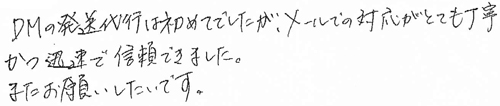 DMの発送代行は初めてでしたが、メールでの対応がとても丁寧
かつ迅速で信頼できました。
またお願いしたいです。